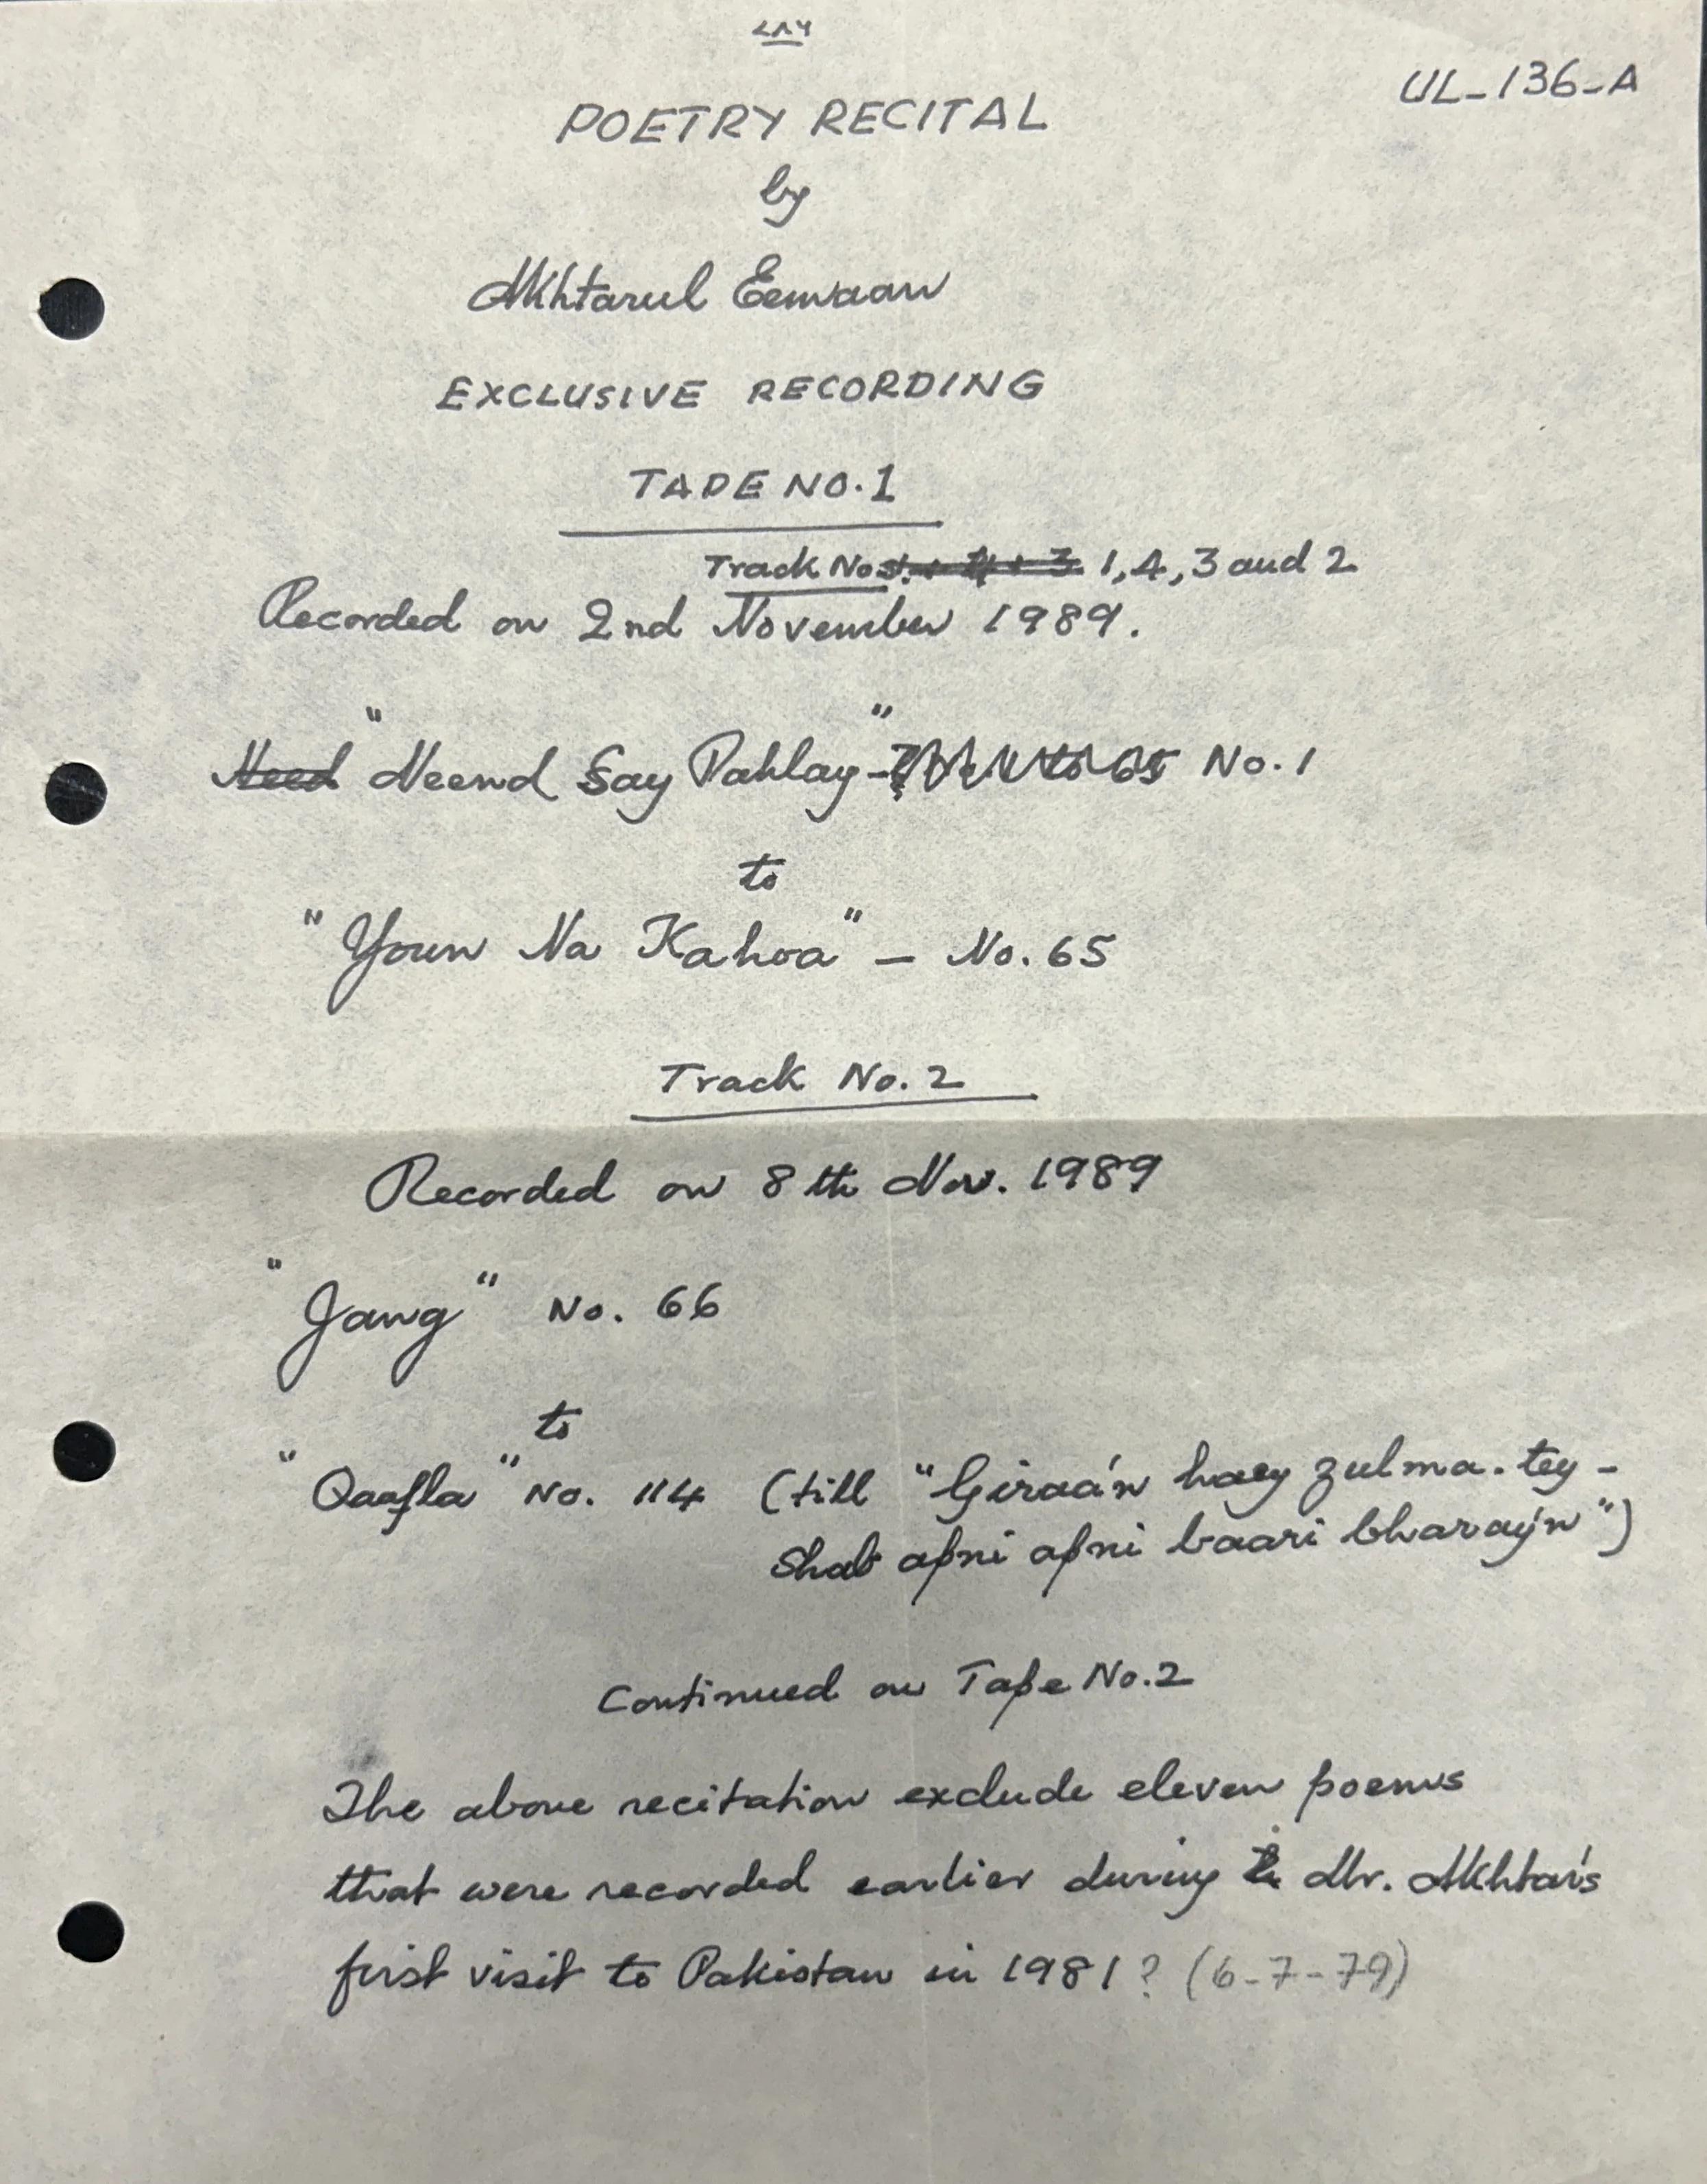 ۷۸۶
UL-136-A
POETRY RECITAL
by
Akhtarul Eemaan
EXCLUSIVE RECORDING
TAPE NO.1
Track Nos. 1, 4, 3 and 2
Recorded on 2nd November 1989.
Need "Neend Say Pahlay" - to 65 No. 1
to
"Youn Na Kahoa" - No. 65
Track No. 2
Recorded on 8th Nov. 1989
"Jang" No. 66
to
"Qaafla" No. 114 (till "Giraán haey zulma.tey-
Shab apni apni baari bharayń")
Continued on Tape No.2
The above recitation exclude eleven poems
that were recorded earlier during Mr. Akhtar's
first visit to Pakistan in 1981? (6-7-79)